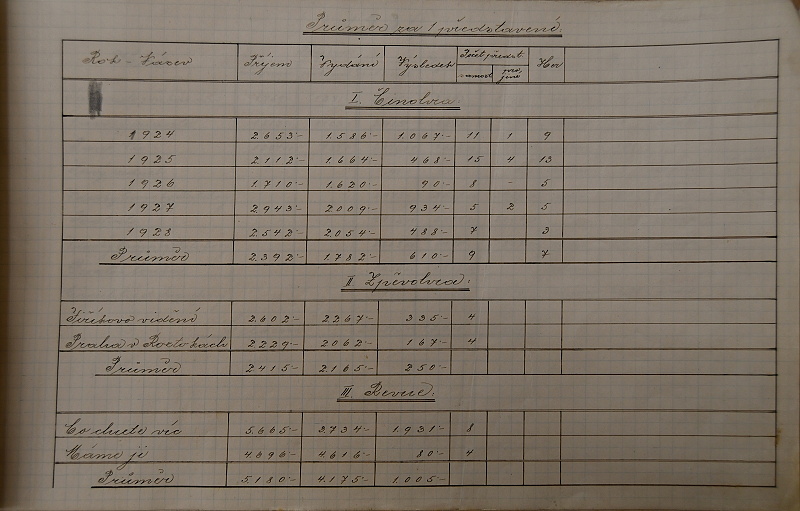 Průměr za 1 představení.
Rok - Název Příjem Vydání Výsledek Počet předst. Her
I. Činohra
1924 2.653·- 1.586·- 1.067·- 11 1 9
1925 2.112·- 1.664·- 468·- 15 4 13
1926 1.710·- 1.620·- 90·- 8 - 5
1927 2.943·- 2.009·- 934·- 5 2 5
1928 2.542·- 2.054·- 488·- 7 3
Průměr 2.392·- 1.782·- 610·- 9 7
II Zpěvohra:
Jiříkovo vidění 2.602·- 2.267·- 335·- 4
Praha v Roztokách 2.229·- 2.062·- 167·- 4
Průměr 2.415·- 2.165·- 250·-
III. Revue:
Co chcete víc 5.665·- 2.734·- 1.931·- 8
Máme ji 4.696·- 4.616·- 80·- 4
Průměr 5.180·- 4.175·- 1.005·-